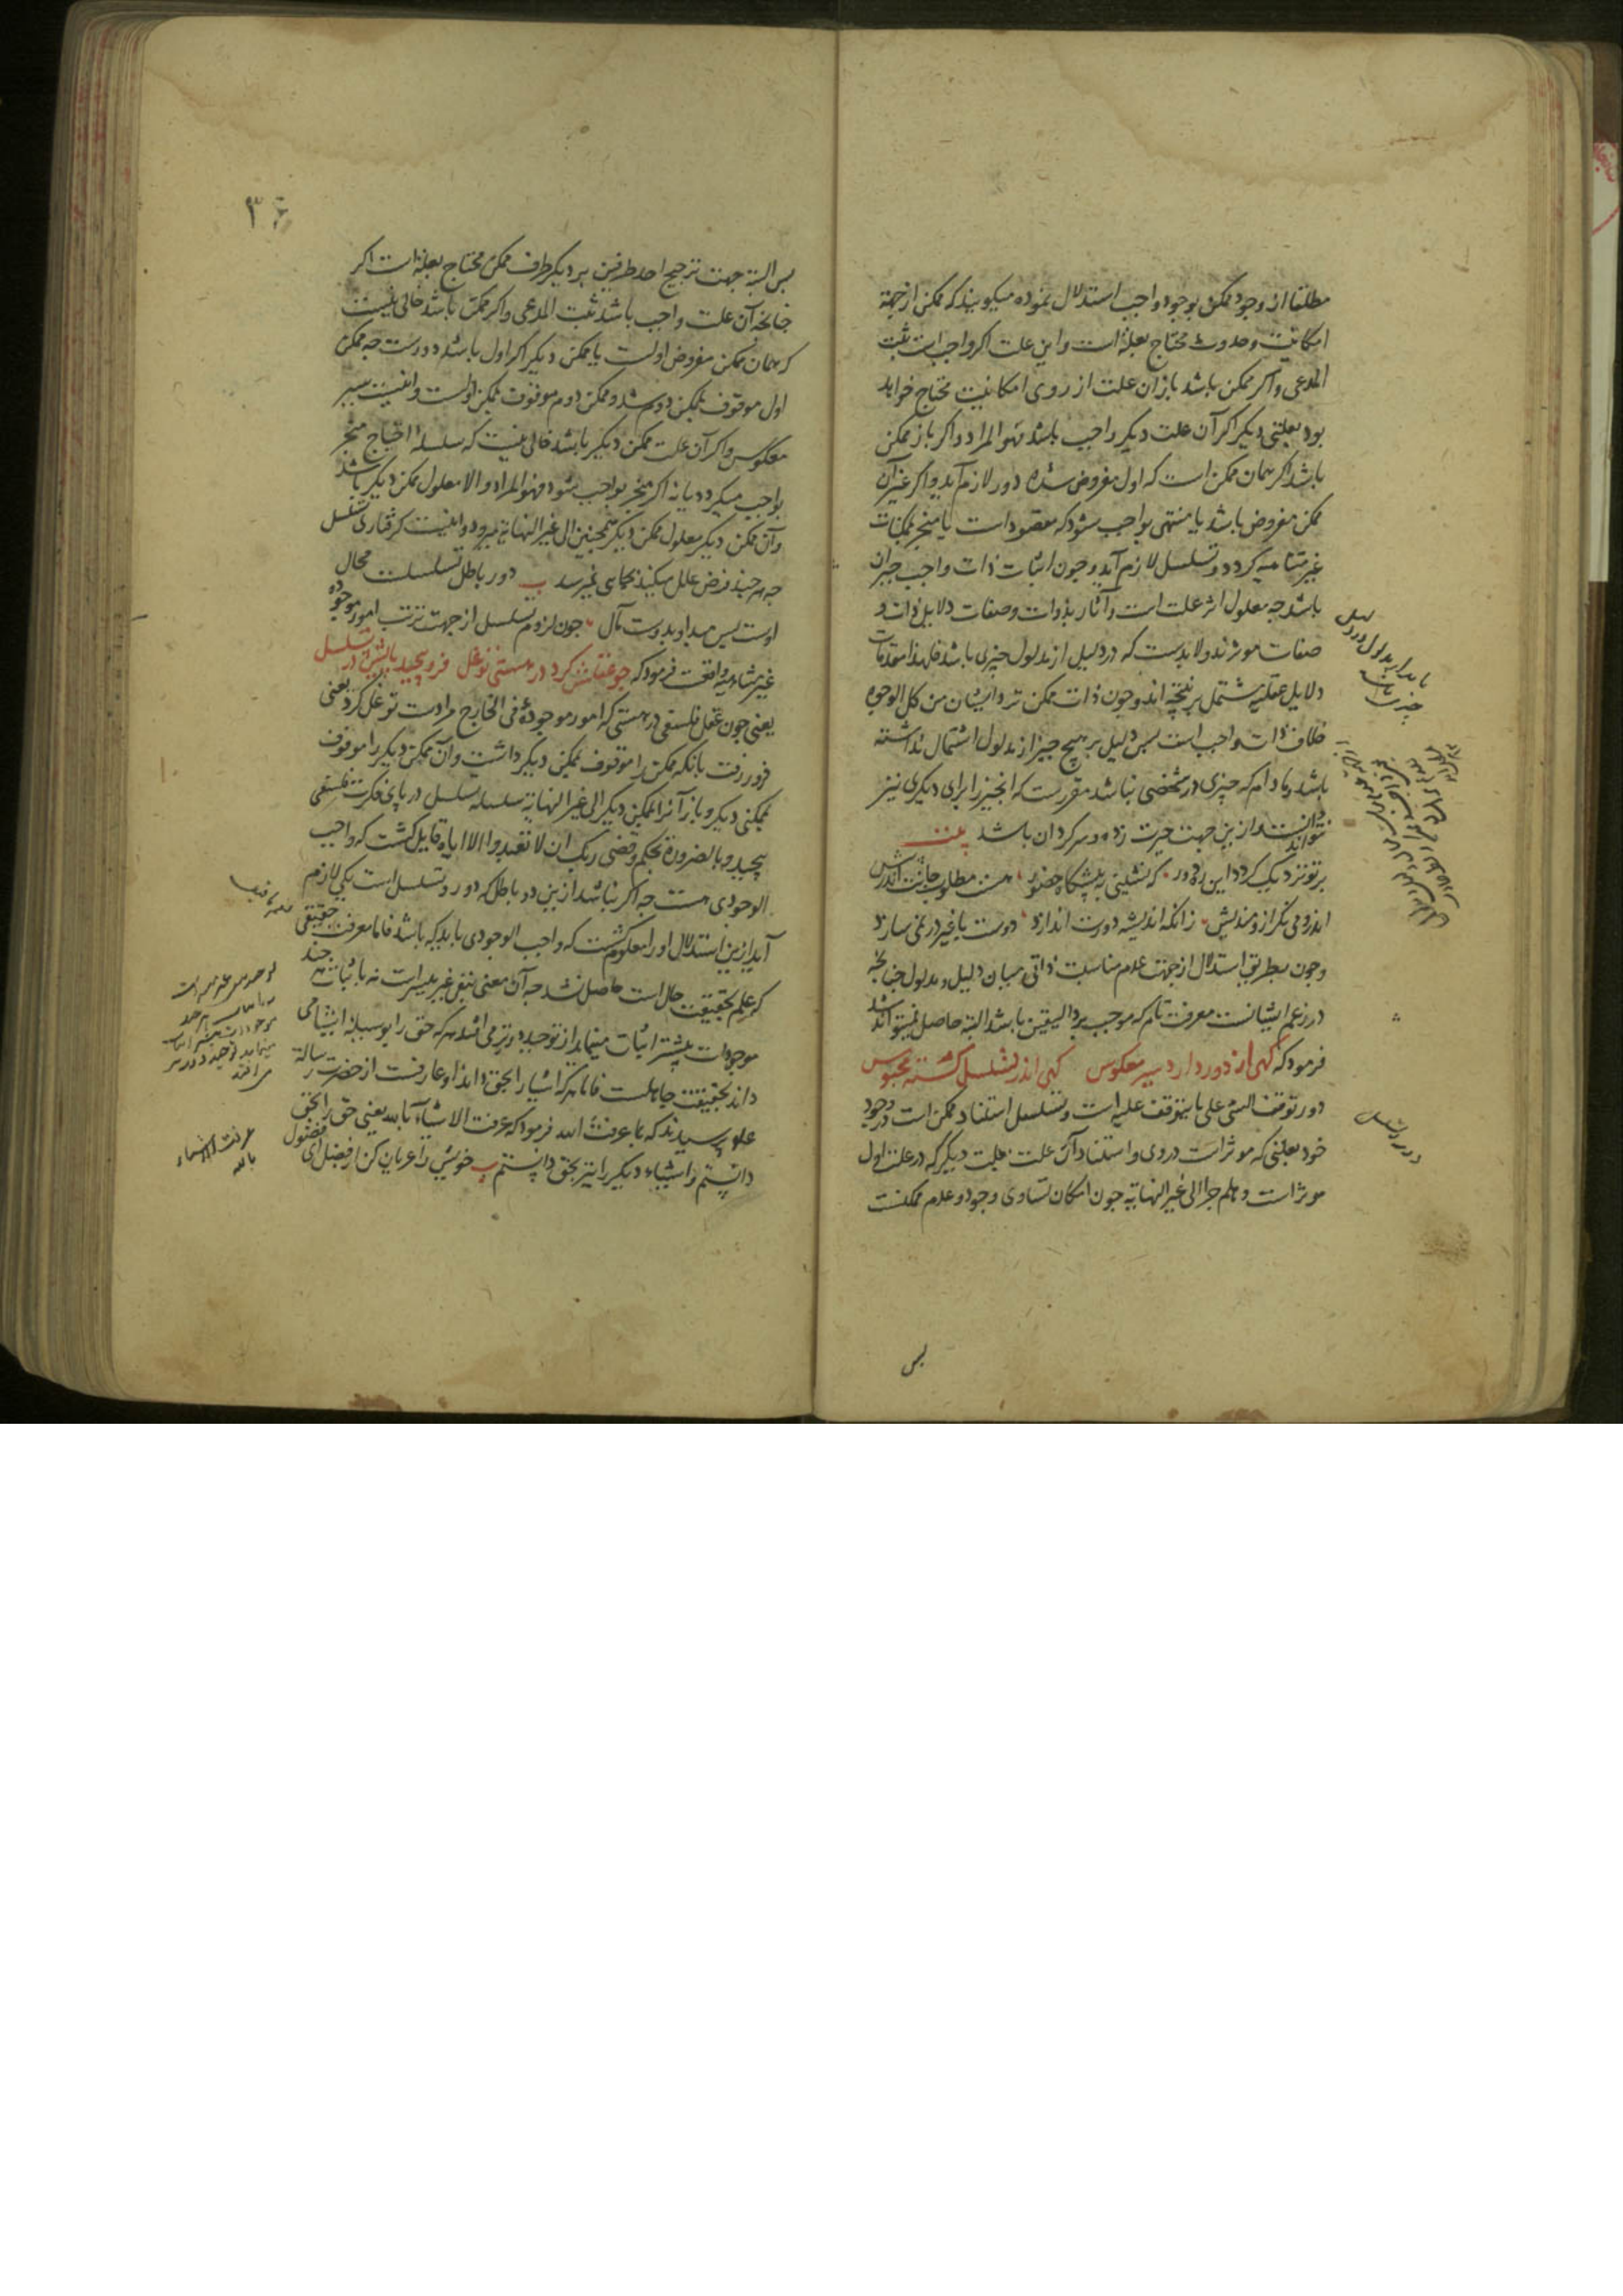 مطلقا از وجود ممکن بوجود واجب استدلال نموده میکویند که ممکن از جهة
امکانیت و حدوث محتاج بعلة است و این علت اکر واجب است ثبت
المدعی و اکر ممکن باشد باز آن علت از روی امکانیت محتاج خواهد
بود بعلتی دیکر اکر آن علت دیکر واجب باشد فهو المراد و اکر باز ممکن
باشد اکر همان ممکن است که اول مفروض شده دور لازم آید و اکر غیر آن
ممکن مفروض باشد یا منتهی بواجب شود که مقصود است یا منجر بممکنات
غیر متناهیه کردد و تسلسل لازم آید و چون اثبات ذات واجب
باشد چه معلول اثر علت است و آثار بذوات و صفات دلایل ذات و
صفات موثرند و لابدست که در دلیل از مدلول چیزی باشد فلهذا مقدمات
دلایل عقلیه مشتمل بر نتیجه اند و چون ذات ممکن نزد ایشان من کل الوجوه
خلاف ذات واجب است پس دلیل بر هیچ چیز از مدلول اشتمال نداشته
باشد و مادام که چیزی در شخصی نباشد مقررست که انچیز را برای دیکری نیز
نتواند دانست و ازین جهت حیرت زده و سرکردان باشد بیت
بر تو نزدیک کردد این ره دور که نشینی به پیشکاه حضور هست مطلوب جانت اندر
اندرو می نکر ازو مندیش زانکه اندیشه دورت اندازد دوست با غیر در نمی سازد
و چون بطریق استدلال از جهت عدم مناسبت ذاتی میان دلیل و مدلول چنانچه
در زعم ایشانست معرفت تام که موجب برد الیقین باشد البته حاصل نمیتواند شد
فرمود که کهی از دور دارد سیر معکوس کهی اندر تسلسل کشته محبوس
دور توقف الشئ علی ما یتوقف علیه است و تسلسل استناد ممکن است در وجود
خود بعلتی که موثر است در وی و استناد آن علت بعلت دیکر که در علت اول
موثر است و هلم جرا الی غیر النهایة چون امکان تساوی وجود و عدم ممکنست
پس
دور و تسلسل
۳۶
پس البته جهت ترجیح احد طرفین بر دیکر طرف ممکن محتاج بعلة است اکر
چنانچه آن علت واجب باشد ثبت المدعی و اکر ممکن باشد خالی نیست
که همان ممکن مفروض اولست یا ممکن دیکر اکر اول باشد دورست چه ممکن
اول موقوف بممکن دوم شد و ممکن دوم موقوف بممکن اولست و اینست سیر
معکوس و اکر آن علت ممکن دیکر باشد خالی نیست که سلسله احتیاج منجر
بواجب میکردد یا نه اکر منجر بواجب شود فهو المراد و الا معلول ممکن دیکر باشد
و آن ممکن دیکر معلول ممکن دیکر همچنین الی غیر النهایة میرود و اینست کرفتاری تسلسل
چه هر چند فرض علل میکنند بجایی نمیرسد ب دور باطل تسلسلت محال
اوست پس مبدا و بدوست مآل چون لزوم تسلسل از جهت ترتب امور موجوده
غیر متناهیه واقعست فرمود که چو عقلش کرد در هستی توغل فرو پیچید پایش در تسلسل
یعنی چون عقل فلسفی در هستی که امور موجودهٔ فی الخارج مرادست توغل کرد یعنی
فرو رفت بانکه ممکن را موقوف بممکن دیکر داشت و آن ممکن دیکر را موقوف
بممکنی دیکر و باز آنرا بممکن دیکر الی غیر النهایة سلسله تسلسل در پای فکرت فلسفی
پیچید و بالضرورة بحکم و قضی ربک ان لا تعبدوا الا ایاه قایل کشت که واجب
الوجودی هست چه اکر نباشد ازین دو باطل که دور و تسلسل است یکی لازم
آید ازین استدلال او را معلوم کشت که واجب الوجودی باید که باشد فاما معرفت حقیقی
که علم بحقیقت حال است حاصل نشد چه آن معنی بنفی غیر میسرست نه باثبات هر چند
موجودات بیشتر اثبات مینماید از توحید دورتر می افتد هر که حق را بوسیله اشیا می
داند بحقیقت جاهلست فاما هر که اشیا را بحق داند او عارفست از حضرت رسالة
علیه پرسیدند که بما عرفت الله فرمود که عرفت الاشیاء بالله یعنی حق را بحق
دانستم و اشیاء دیکر را نیز بحق دانستم ب خویش را عریان کن از فضل ای فضول
عرفت الاشیاء
بالله